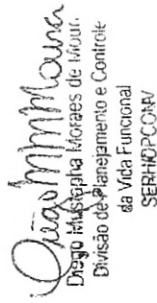 Diego Mustapha Moraes de Mour
Divisão de Planejamento e Controle
da Vida Funcional
SERH/DPCONV